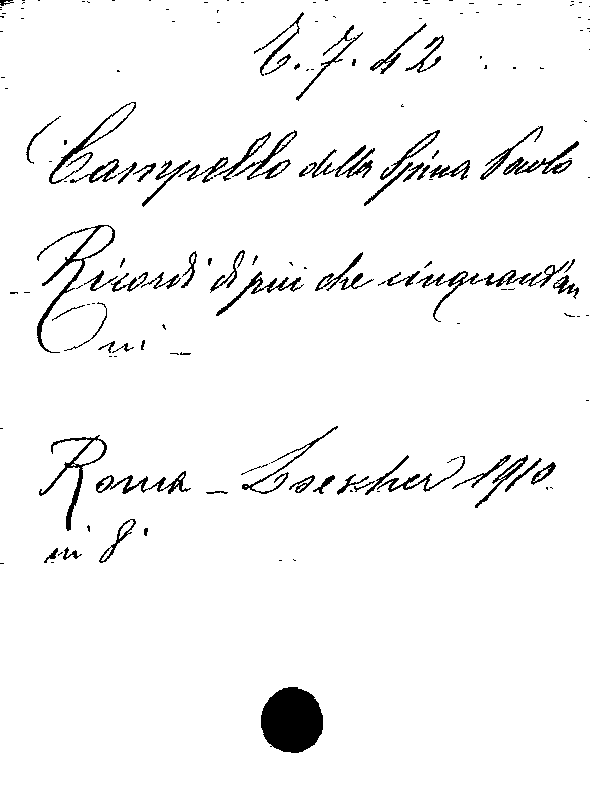 E. 7. 42
Campello della Spina Paolo
Ricordi di più che cinquant'an
ni -
Roma - Loescher 1910
in 8°